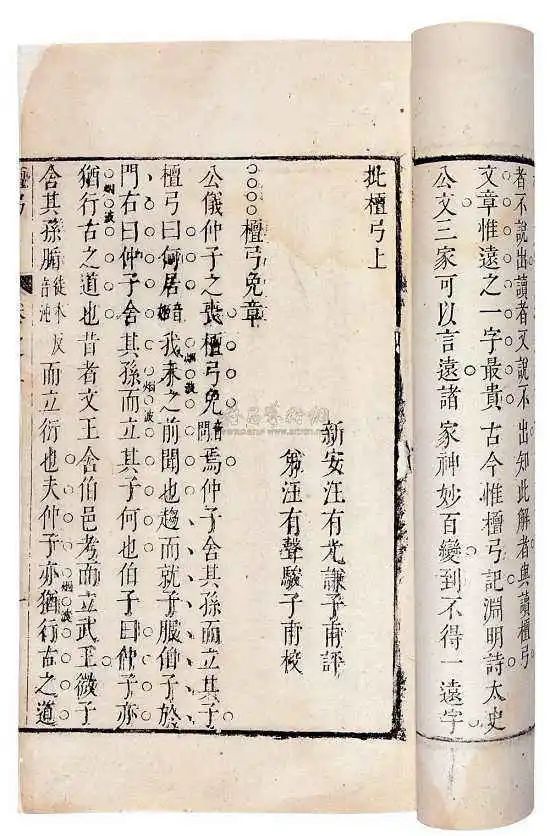 者不說出讀者又說不出知此解者與讀檀弓
文章惟遠之一字最貴古今惟檀弓記淵明詩太史
公文三家可以言遠諸家神妙百變到不得一遠字
批檀弓上
新安汪有光謙子甫評
弟汪有聲駿子甫校
檀弓免章
公儀仲子之喪檀弓免音問焉仲子舍其孫而立其子
檀弓曰何居音姬我未之前聞也烟波趨而就子服伯子於
門右曰仲子舍其孫而立其子何也伯子曰仲子亦
猶行古之道也昔者文王舍伯邑考而立武王微子
烟波
舍其孫腯徒本反音沌而立衍也夫仲子亦猶行古之道
烟波
檀弓